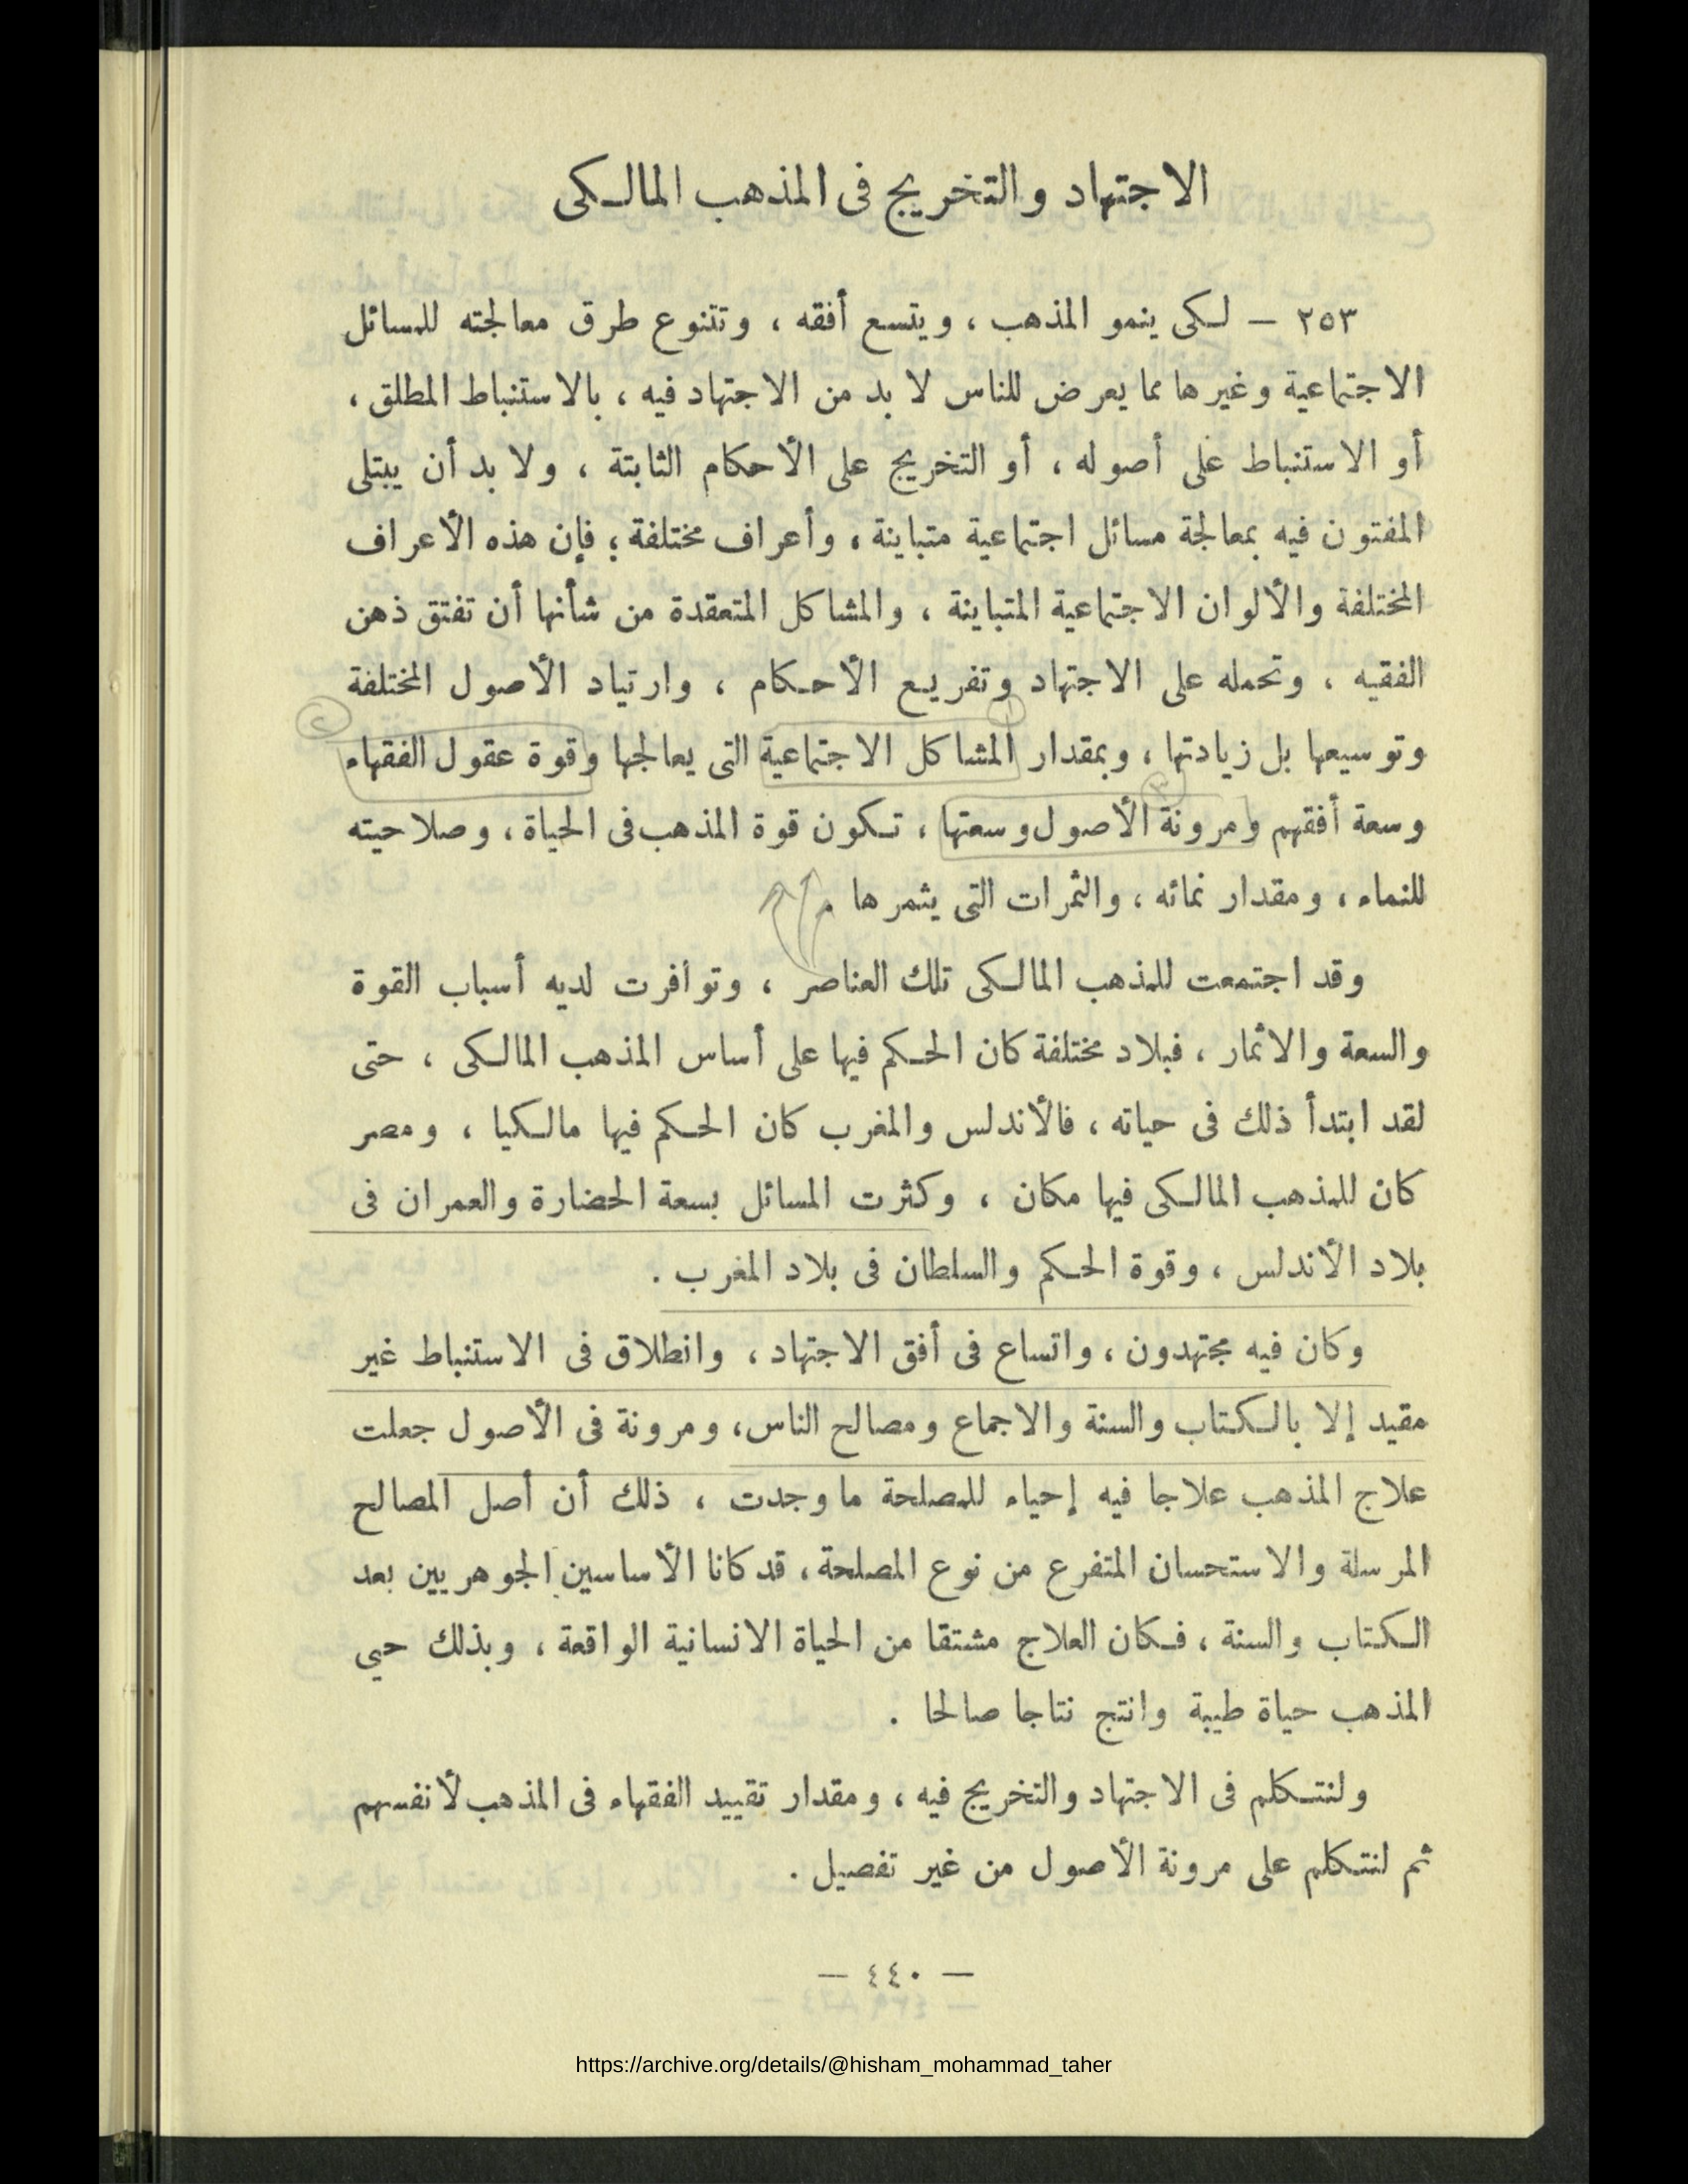 الاجتهاد والتخريج فى المذهب المالكى
٢٥٣ — لكى ينمو المذهب ، ويتسع أفقه ، وتتنوع طرق معالجته للمسائل
الاجتماعية وغيرها مما يعرض للناس لا بد من الاجتهاد فيه ، بالاستنباط المطلق ،
أو الاستنباط على أصوله ، أو التخريج على الأحكام الثابتة ، ولا بد أن يبتلى
المفتون فيه بمعالجة مسائل اجتماعية متباينة ، وأعراف مختلفة ؛ فإن هذه الأعراف
المختلفة والألوان الاجتماعية المتباينة ، والمشاكل المتعقدة من شأنها أن تفتق ذهن
الفقيه ، وتحمله على الاجتهاد وتفريع الأحكام ، وارتياد الأصول المختلفة
١
٢
وتوسيعها بل زيادتها ، وبمقدار المشاكل الاجتماعية التى يعالجها وقوة عقول الفقهاء
٣
وسعة أفقهم ومرونة الأصول وسعتها ، تكون قوة المذهب فى الحياة ، وصلاحيته
للنماء ، ومقدار نمائه ، والثمرات التى يثمرها .
وقد اجتمعت للمذهب المالكى تلك العناصر ، وتوافرت لديه أسباب القوة
والسعة والاثمار ، فبلاد مختلفة كان الحكم فيها على أساس المذهب المالكى ، حتى
لقد ابتدأ ذلك فى حياته ، فالأندلس والمغرب كان الحكم فيها مالكيا ، ومصر
كان للمذهب المالكى فيها مكان ، وكثرت المسائل بسعة الحضارة والعمران فى
بلاد الأندلس ، وقوة الحكم والسلطان فى بلاد المغرب .
وكان فيه مجتهدون ، واتساع فى أفق الاجتهاد ، وانطلاق فى الاستنباط غير
مقيد إلا بالكتاب والسنة والاجماع ومصالح الناس، ومرونة فى الأصول جعلت
علاج المذهب علاجا فيه إحياء للمصلحة ما وجدت ، ذلك أن أصل المصالح
المرسلة والاستحسان المتفرع من نوع المصلحة، قد كانا الأساسين الجوهريين بعد
الكتاب والسنة ، فكان العلاج مشتقا من الحياة الانسانية الواقعة ، وبذلك حيى
المذهب حياة طيبة وانتج نتاجا صالحا .
ولنتكلم فى الاجتهاد والتخريج فيه ، ومقدار تقييد الفقهاء فى المذهب لأنفسهم
ثم لنتكلم على مرونة الأصول من غير تفصيل .
— ٤٤٠ —
https://archive.org/details/@hisham_mohammad_taher